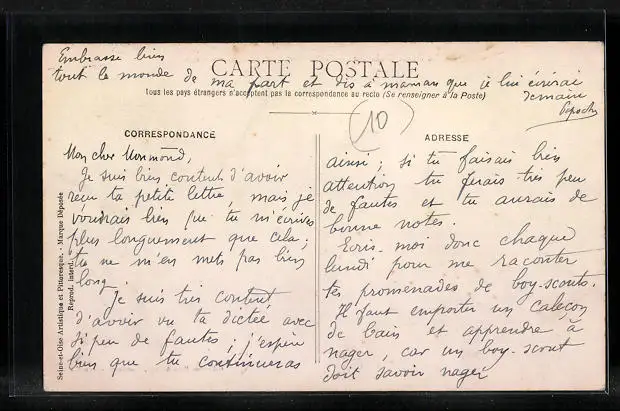 Embrasse bien
tout le monde de ma part et dis à maman que je lui écrirai
demain
CARTE POSTALE
Tous les pays étrangers n'acceptent pas la correspondance au recto (Se renseigner à la Poste)
10
CORRESPONDANCE
Mon cher
Je suis bien content d'avoir
reçu ta petite lettre, mais je
voudrais bien que tu m'écrives
plus longuement que cela;
tu ne m'en mets pas bien
long.
Je suis très content
d'avoir vu ta dictée avec
si peu de fautes; j'espère
bien que tu continueras
ADRESSE
ainsi; si tu faisais bien
attention tu ferais très peu
de fautes et tu aurais de
bonne notes.
Ecris-moi donc chaque
lundi pour me raconter
tes promenades de boy-scouts.
Il faut emporter un caleçon
de bain et apprendre à
nager, car un boy-scout
doit savoir nager
Seine-et-Oise Artistique et Pittoresque. - Marque Déposée
Reprod. interd.